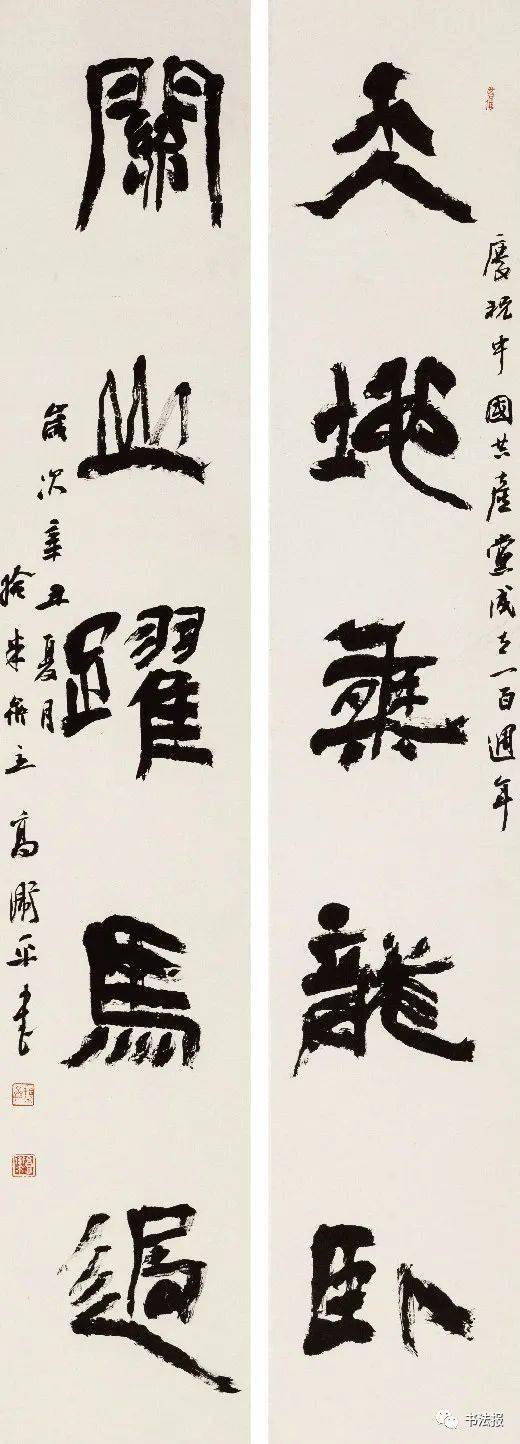 慶祝中國共產黨成立一百週年
天地無龍臥
關山躍馬過
歲次辛丑夏月
拾來齋主 高 平書
书法报